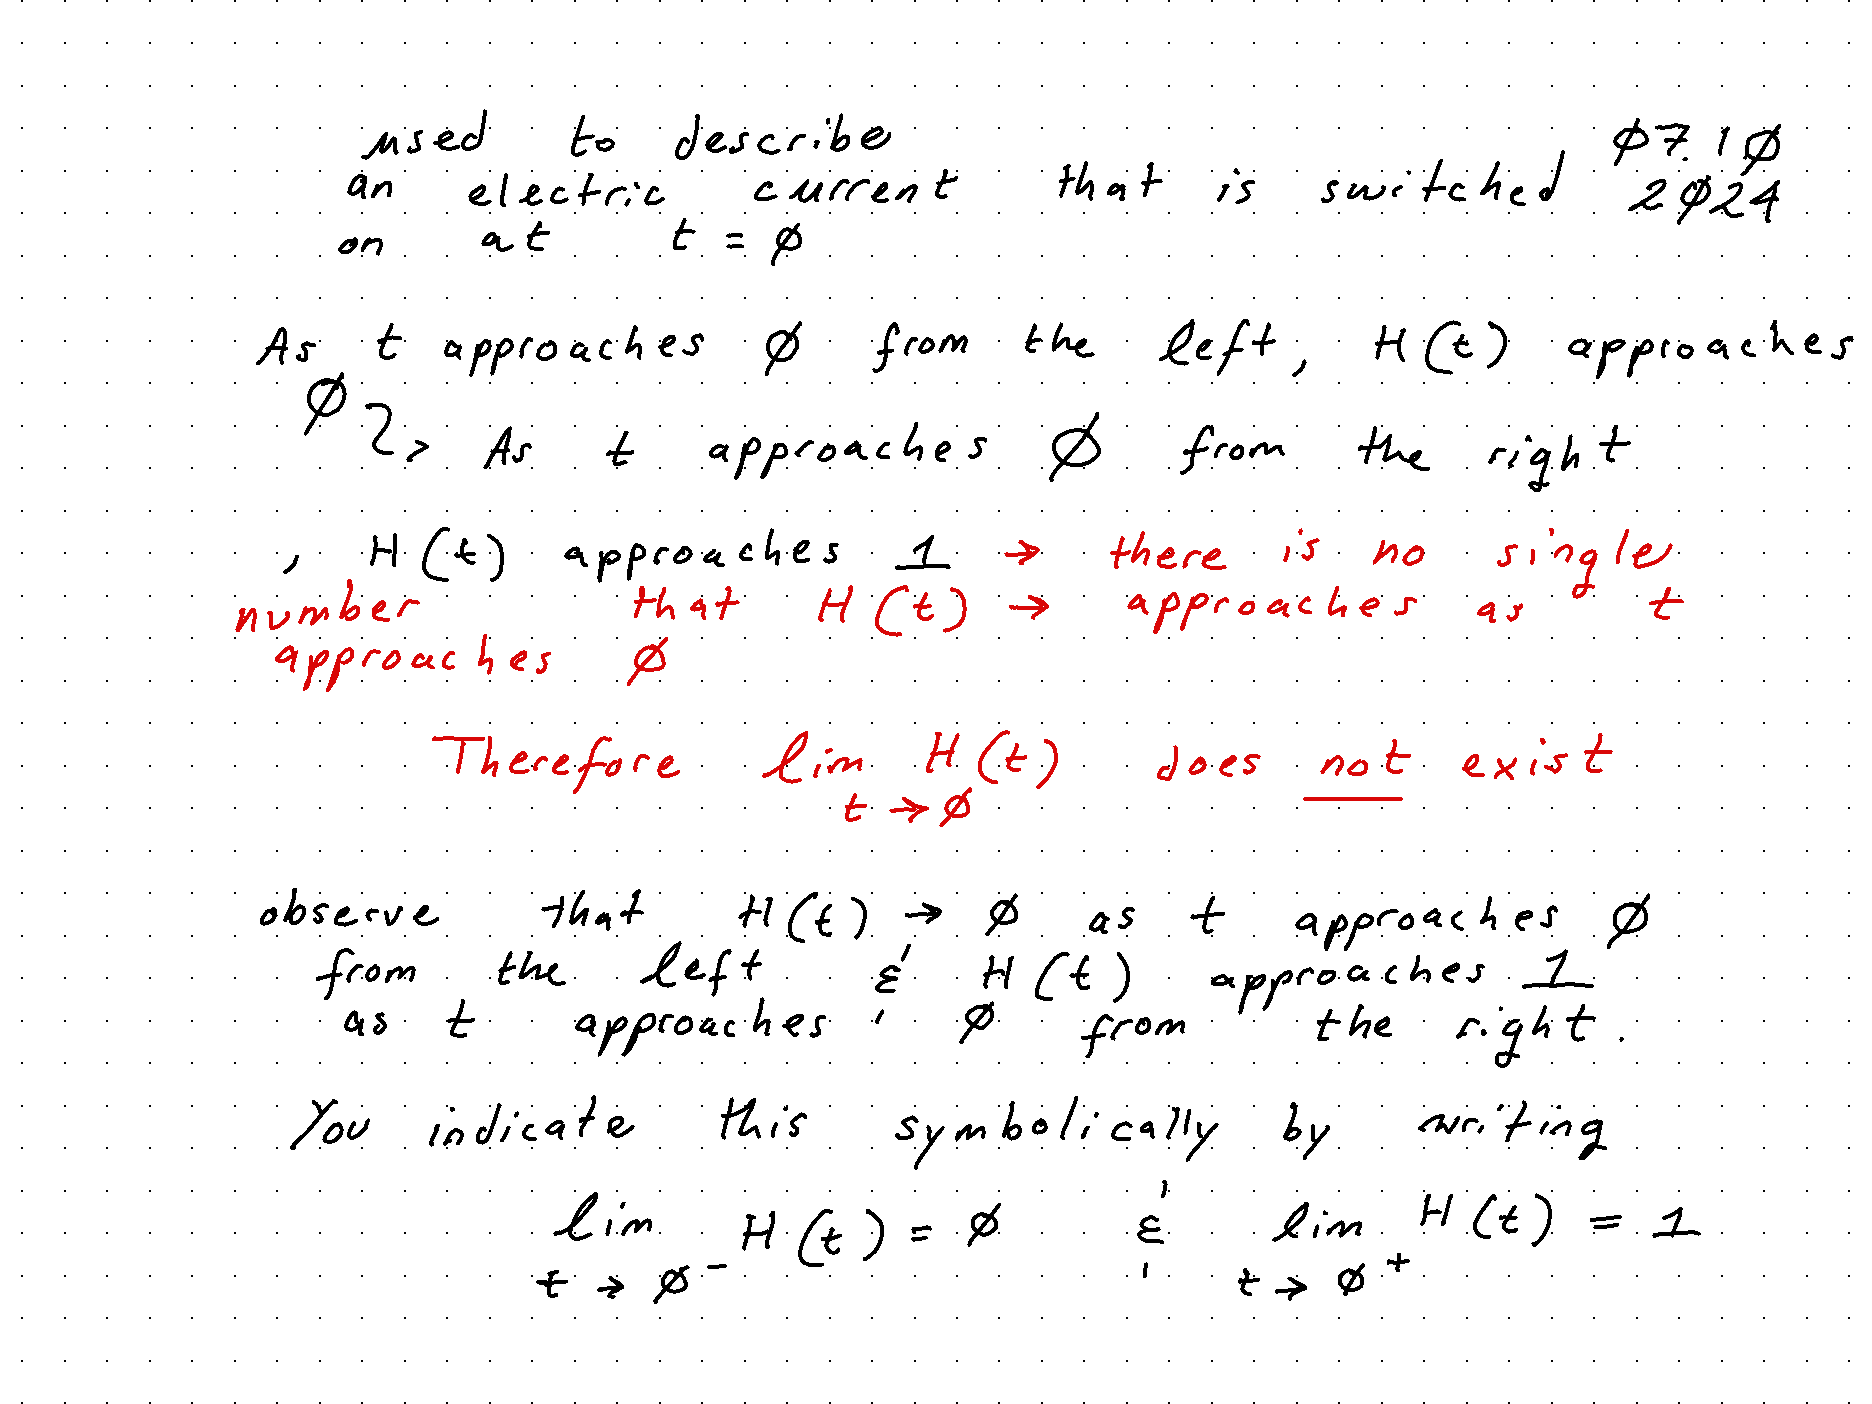 used to describe
an electric current that is switched
on at t = ∅
∅7.1∅
2∅24
As t approaches ∅ from the left, H(t) approaches
∅
As t approaches ∅ from the right
, H(t) approaches 1 → there is no single
number that H(t) → approaches as t
approaches ∅
Therefore lim H(t) does not exist
t → ∅
observe that H(t) → ∅ as t approaches ∅
from the left & H(t) approaches 1
as t approaches ∅ from the right.
You indicate this symbolically by writing
lim H(t) = ∅ & lim H(t) = 1
t → ∅⁻ t → ∅⁺